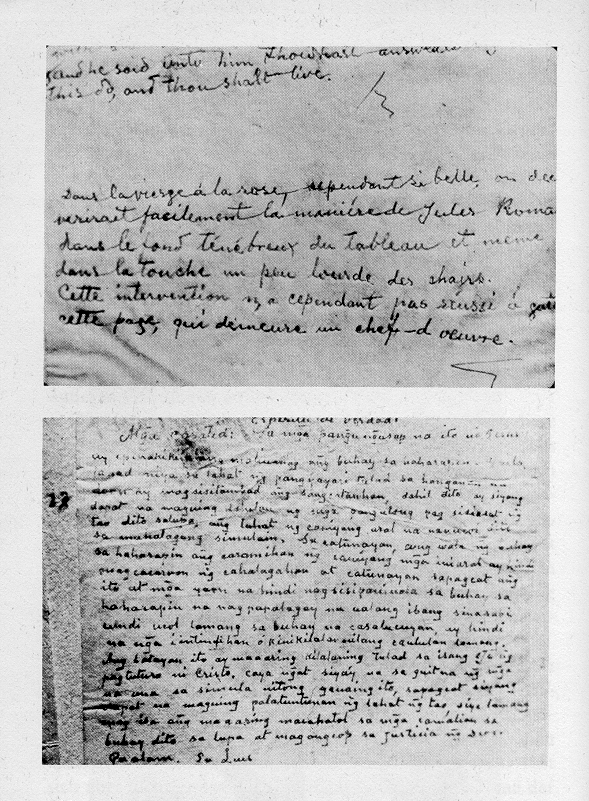 and he said unto him, thou hast answered
this do, and thou shalt live.
Dans la vierge à la rose, cependant si belle, on dec
verirait facilement la manière de Jules Roma
dans le fond ténébreux du tableau et même
dans la touche un peu lourde des chairs.
Cette intervention n'a cependant pas réussi à gate
cette page, qui demeure un chef-d'oeuvre.
Espiritu de verdad
Mga capatid: Sa mga pangungusap na ito ni Jesus
ay ipinakikilalang maliwanag ang buhay sa haharapin
sa lahat ng pangyayari tulad sa hangganan na
ay magsisitamad ang sangtauhan, dahil dito ay siyang
dapat na maguing ng mga pangulong pag sisiasat ng
tao dito sa lupa, ang lahat ng caniyang asal na nauuwi dito
sa mahalagang simulain. Sa catunayan, cung wala ng buhay
sa haharapin ang caramihan ng caniyang mga iniaral ay hindi
magcacaroon ng cahalagahan at catunayan sapagcat ang
ito at mga yaon na hindi nagsisipaniwala sa buhay sa
haharapin na nagpapalagay na ualang ibang sinasabi
cundi ucol lamang sa buhay na casalucuyan ay hindi
na mga iintindihan ó kinikilala
Ang batayan ito ay maaaring kilalaning tulad sa isang
pagtuturo ni Cristo, caya ngat siyay na sa guitna ng mga
na una sa simula nitong gauaing ito, sapagcat siyang
dapat na maguing palatuntunan ng lahat ng tao, siya lamang
ang maaaring macahatol sa mga camalian sa
buhay dito sa lupa at magaayon sa justicia ng Dios.
Paalam. Sn Luis